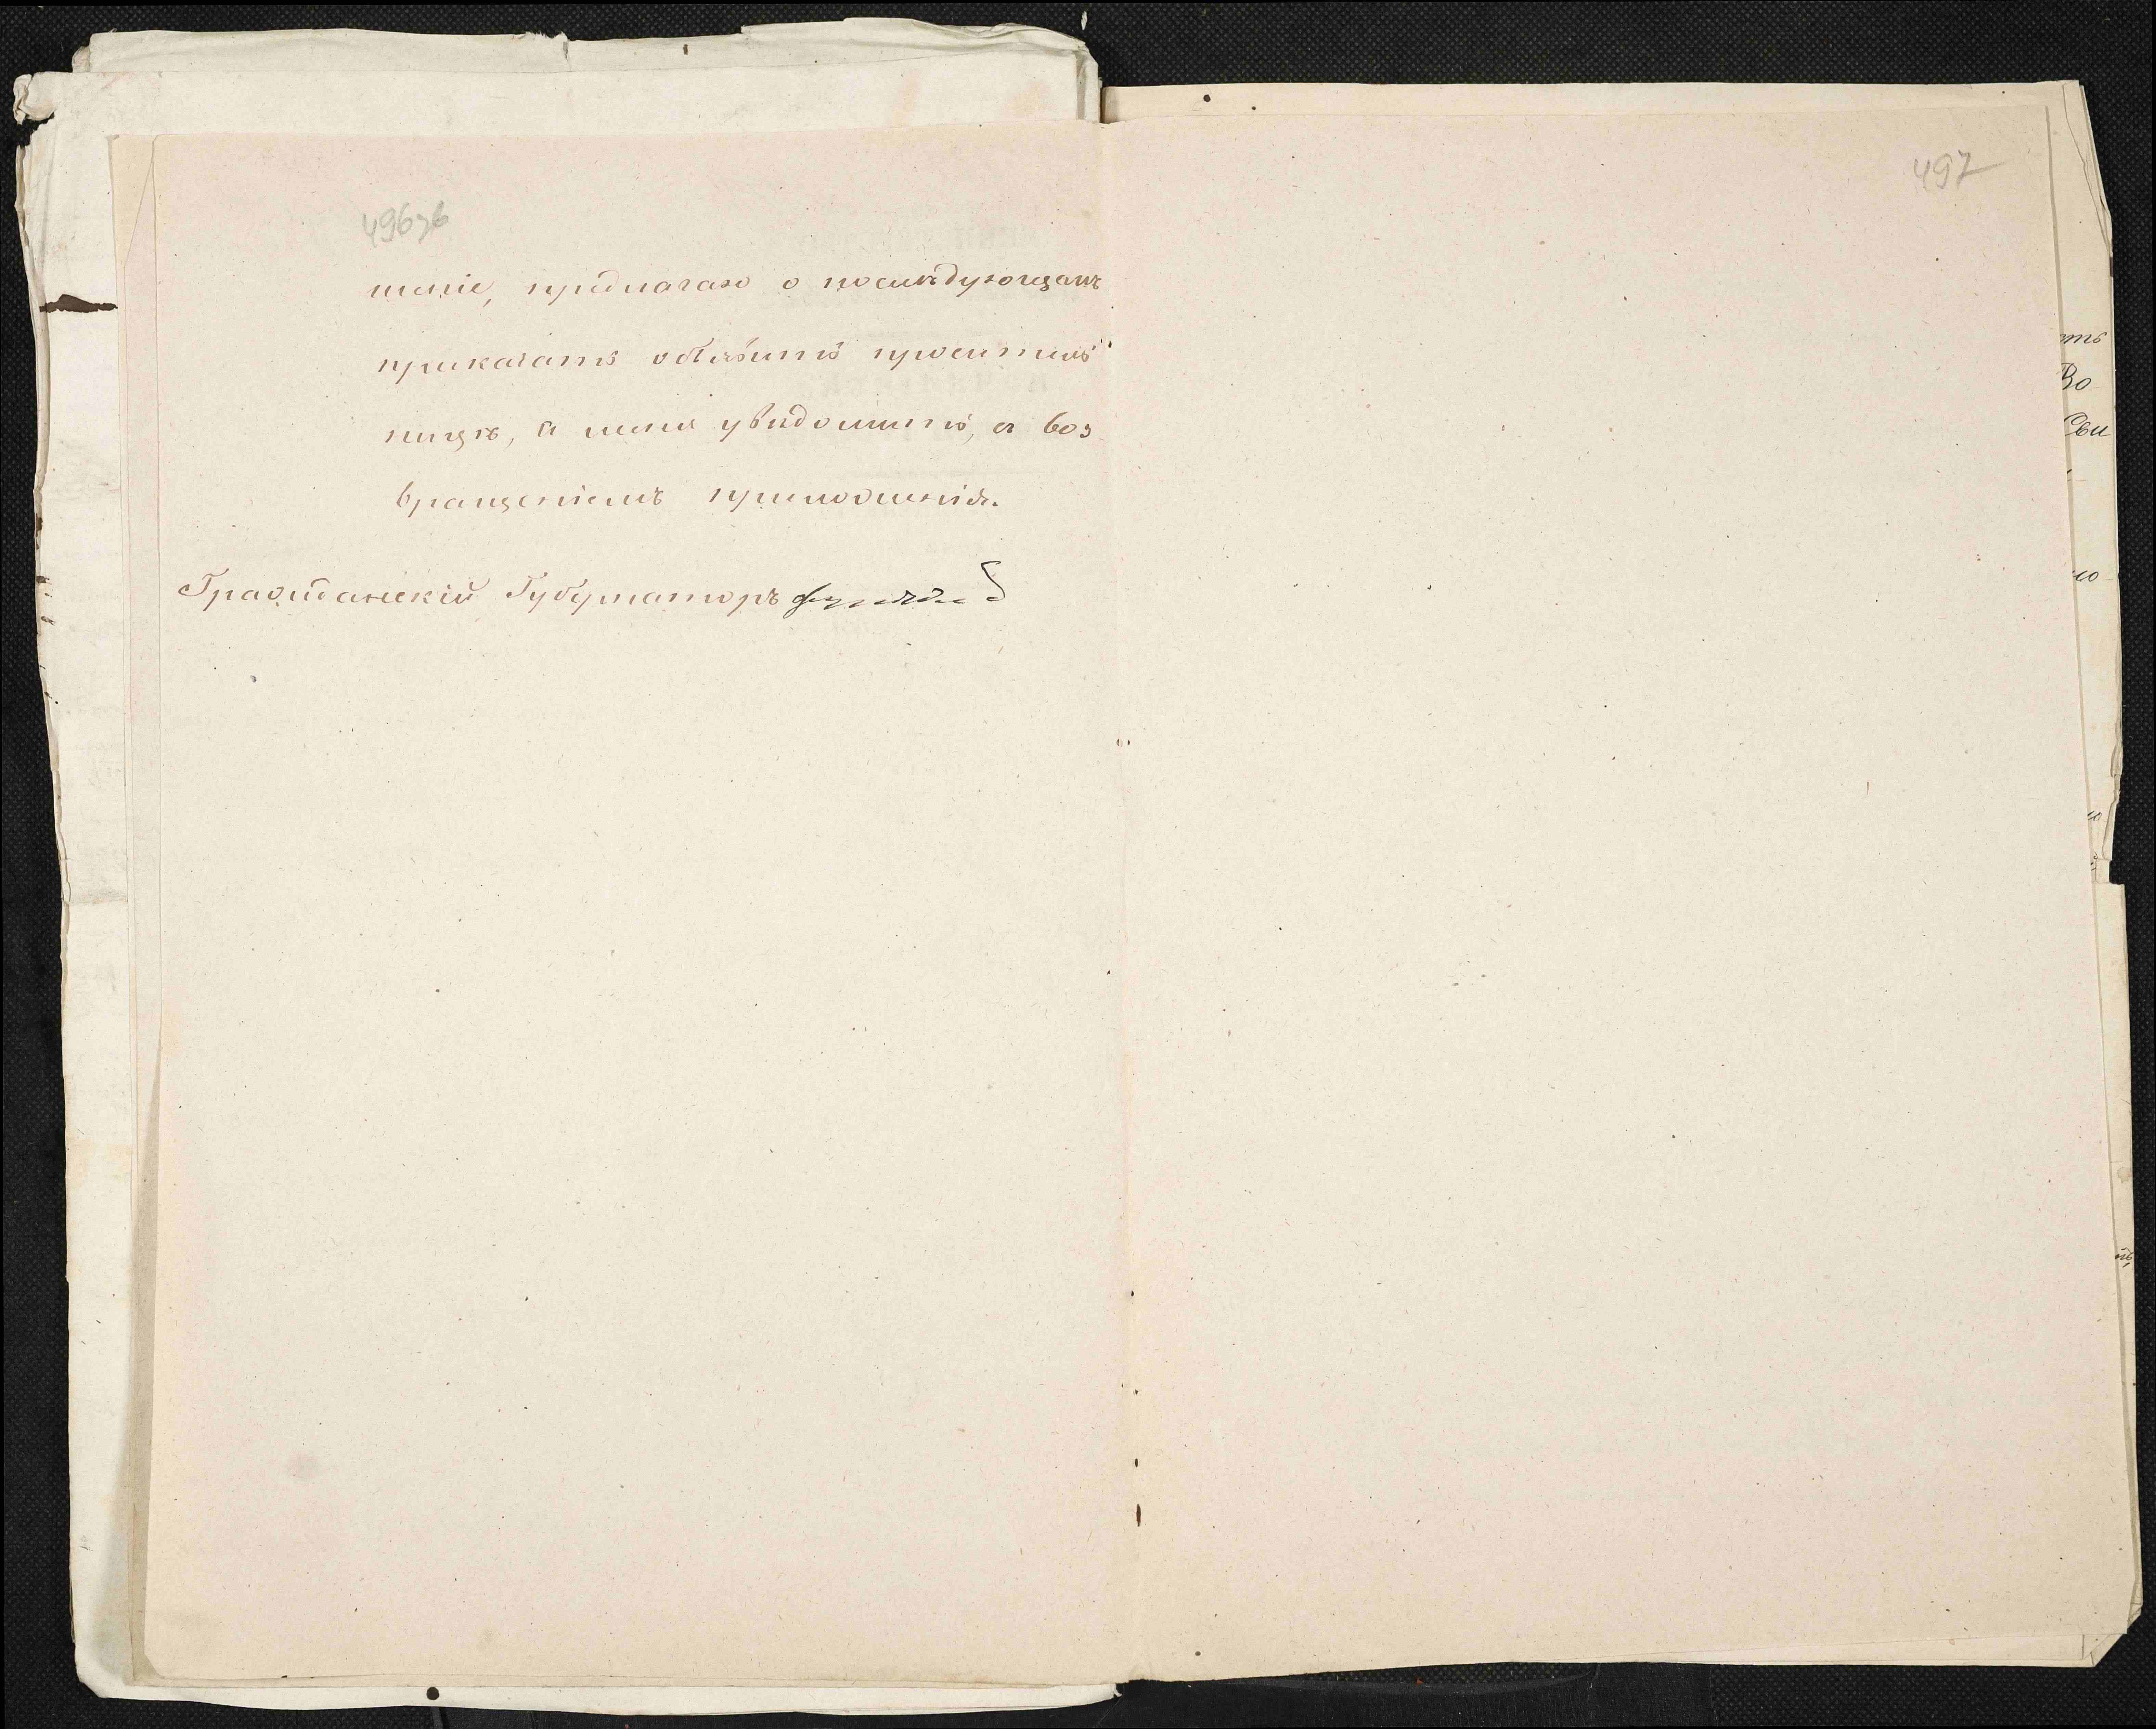 496об
шеніе, предлагаю о послѣдующемъ
приказать объявить проситель
ницѣ, а меня увѣдомить, съ воз
вращеніемъ приложенія.
Гражданскій Губернаторъ
497